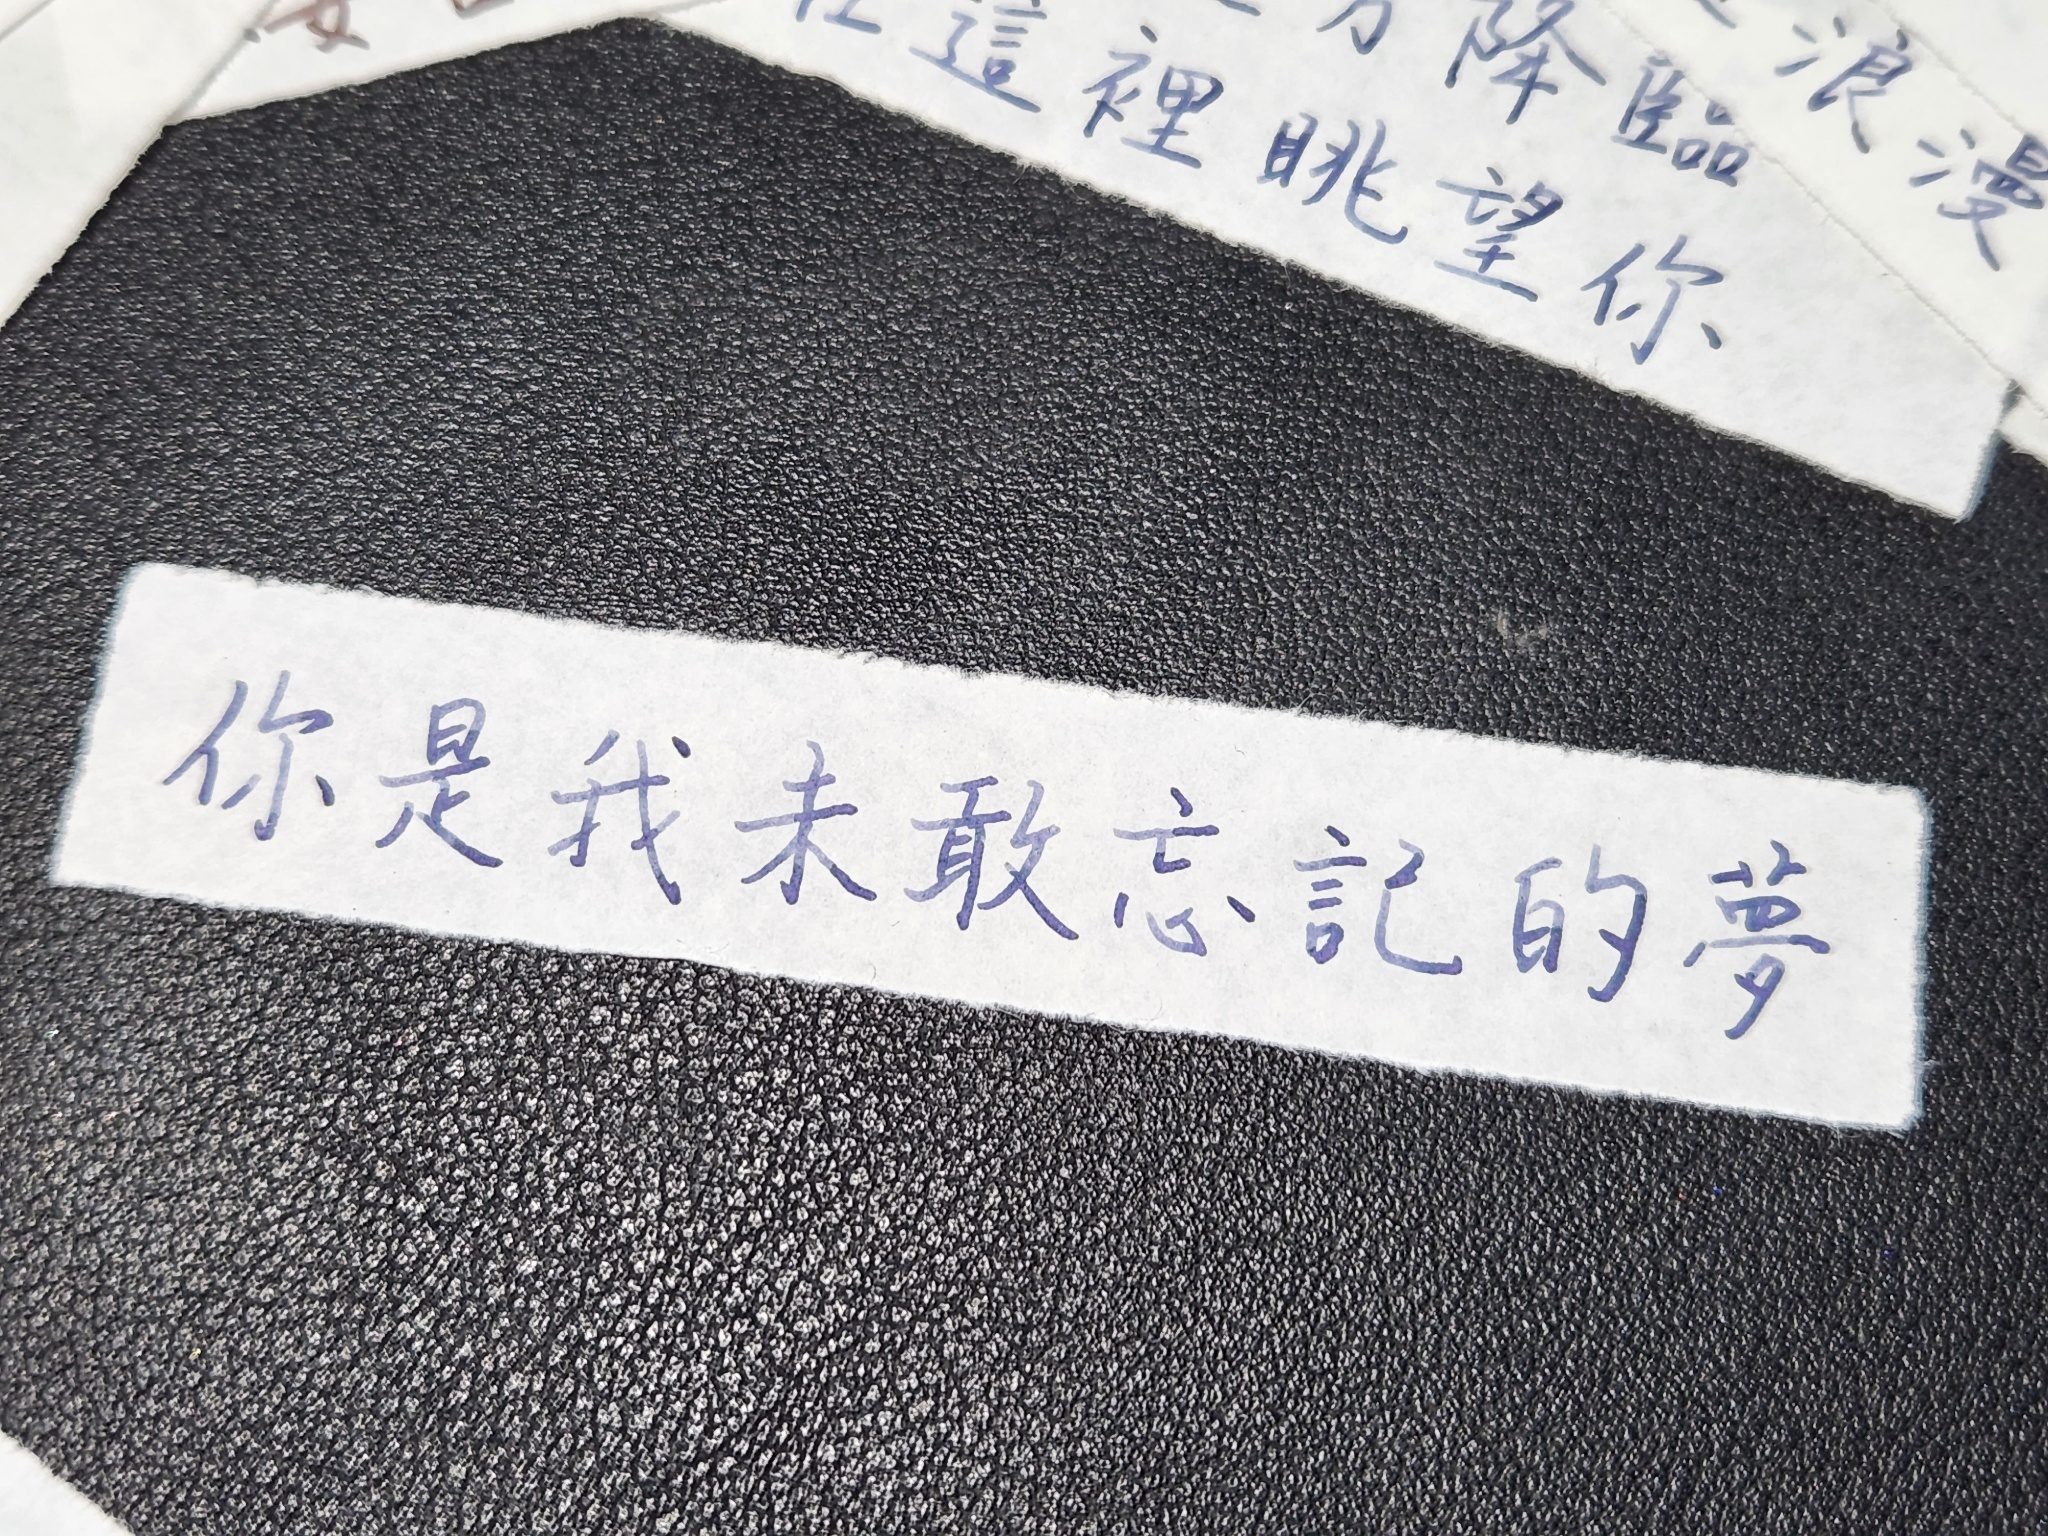 降臨
這裡眺望你
浪漫
你是我未敢忘記的夢